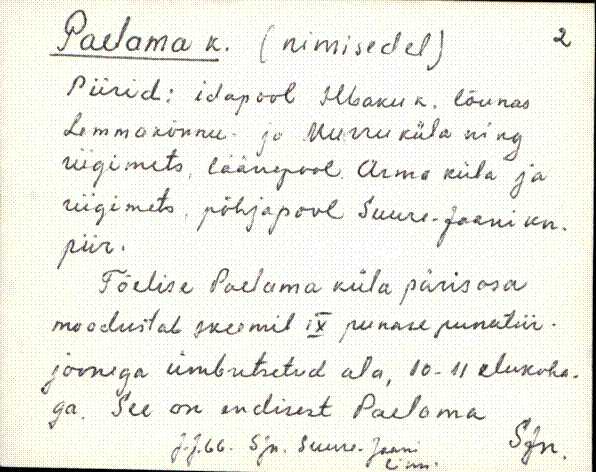 Paelama k. (nimisedel) 2
Piirid: idapool Ilbaku k. lõunas
Lemmakõnnu- ja Murru küla ning
riigimets, läänepool Arma küla ja
riigimets, põhjapool Suure-Jaani kn.
piir.
Tõelise Paelama küla pärisosa
moodustab skeemil IX punase punktiir-
joonega ümbritsetud ala, 10-11 elukoha-
ga. See on endisest Paelama
J.J.66. Sjn. Suure-Jaani Sjn.